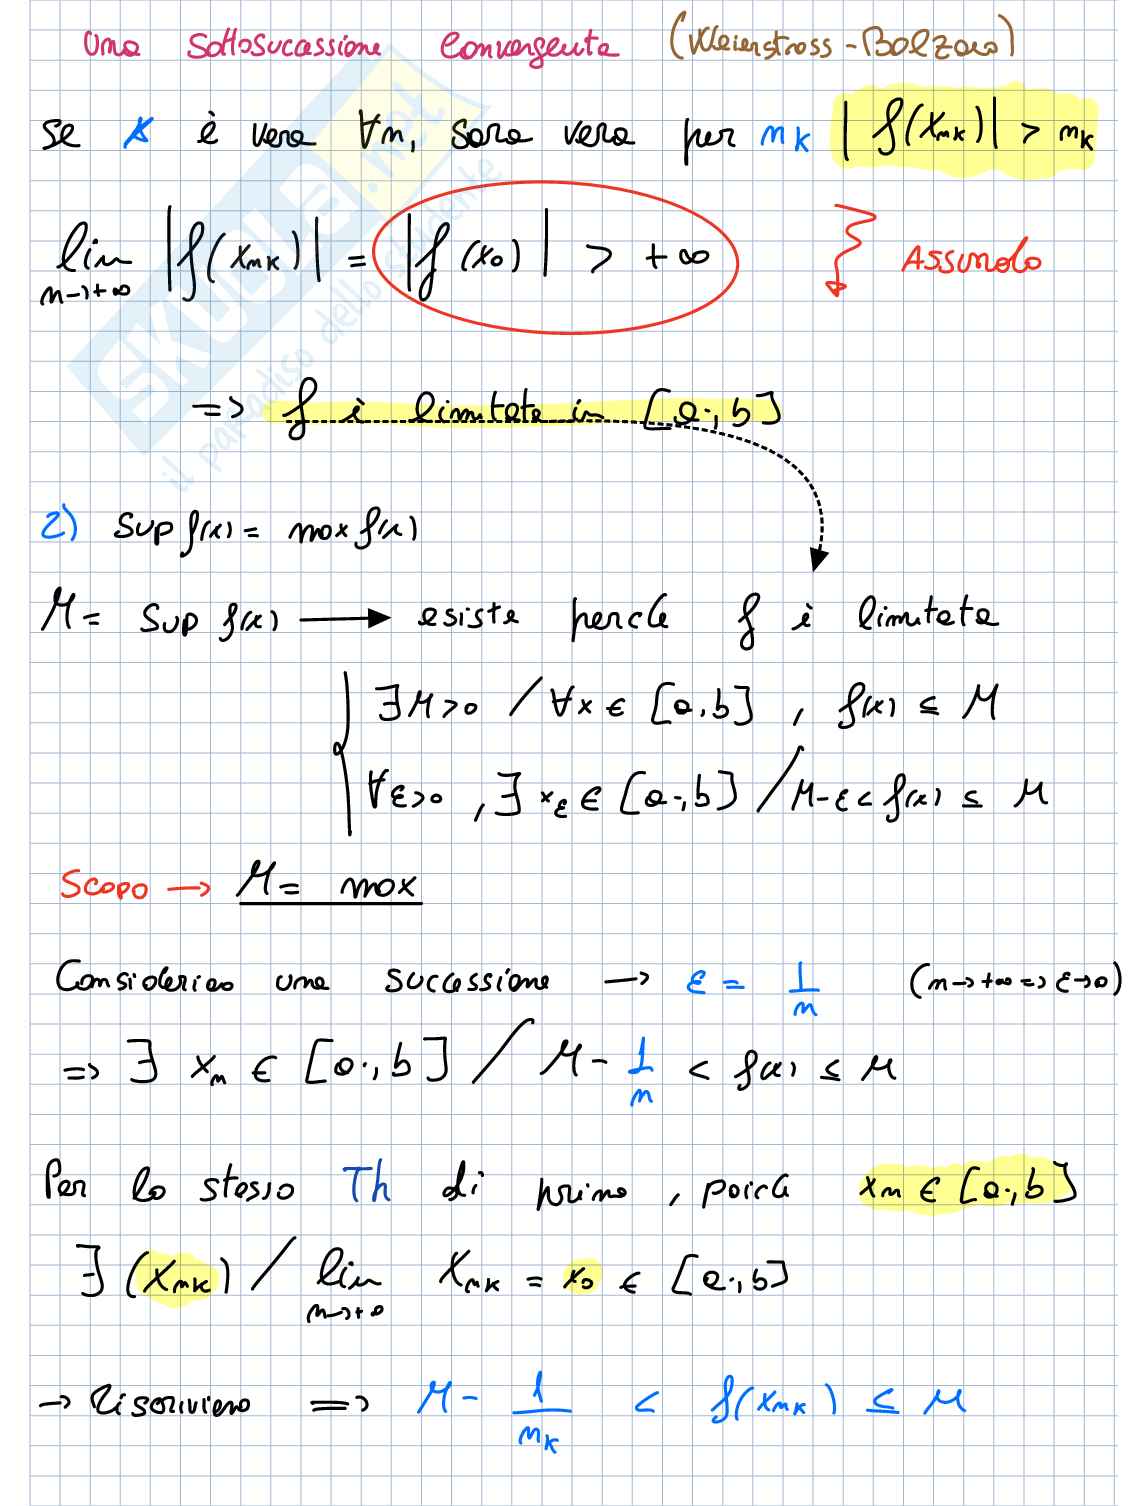 una sottosuccessione convergente (Weierstrass-Bolzano)
Se * è vera ∀n, sarà vera per nk |f(xnk)| > nk
lim n→+∞ |f(xnk)| = |f(x0)| > +∞ Assurdo
=> f è limitata in [a;b]
2) Sup f(x) = max f(x)
M = Sup f(x) → esiste perché f è limitata
∃M>0 / ∀x ∈ [a;b] , f(x) ≤ M
∀ε>0 , ∃ xε ∈ [a;b] / M-ε < f(x) ≤ M
Scopo → M = max
Consideriamo una successione → ε = 1/n (n→+∞ => ε→0)
=> ∃ xn ∈ [a;b] / M - 1/n < f(x) ≤ M
Per lo stesso Th di prima, poiché xn ∈ [a;b]
∃ (xnk) / lim n→+∞ xnk = x0 ∈ [a;b]
→ Riscriviamo => M - 1/nk < f(xnk) ≤ M
SKUOLA.net
il paradiso dello studente